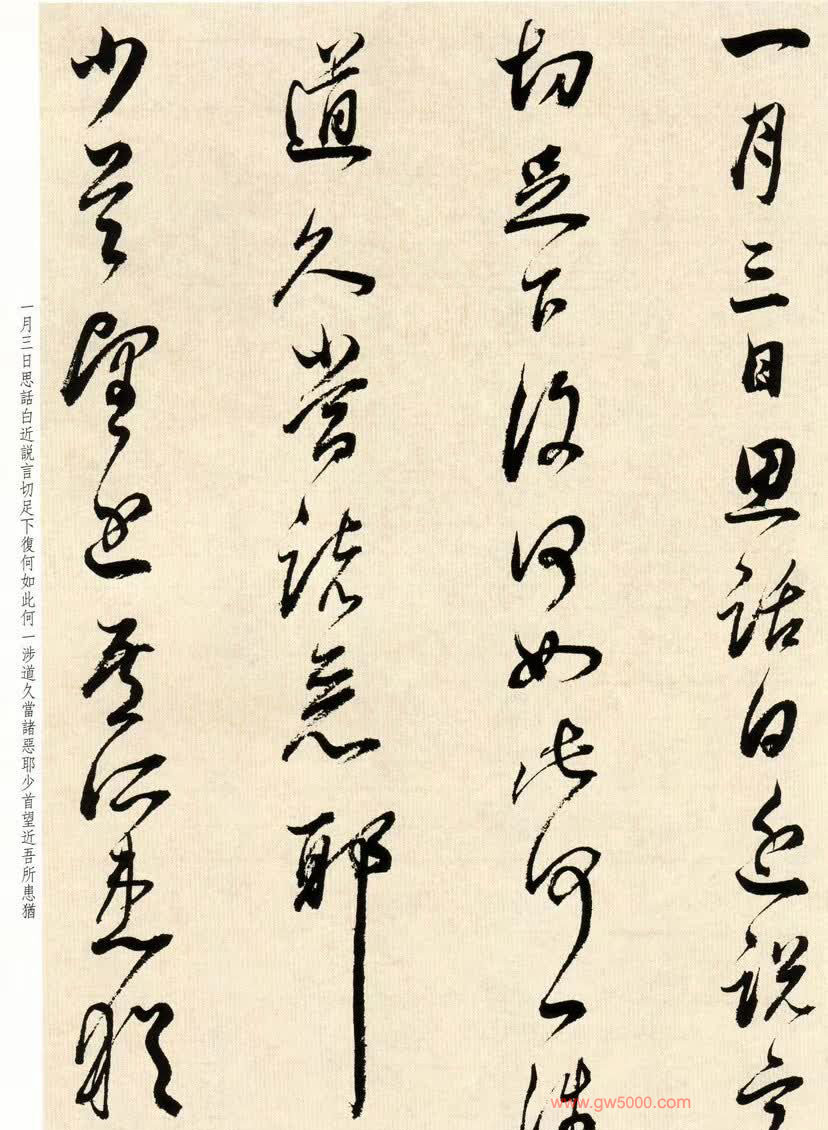 一月三日思話白近説言
切足下復何如此何一涉
道久當諸惡耶
少首望近吾所患猶
一月三日思話白近説言切足下復何如此何一涉道久當諸惡耶少首望近吾所患猶
www.gw5000.com